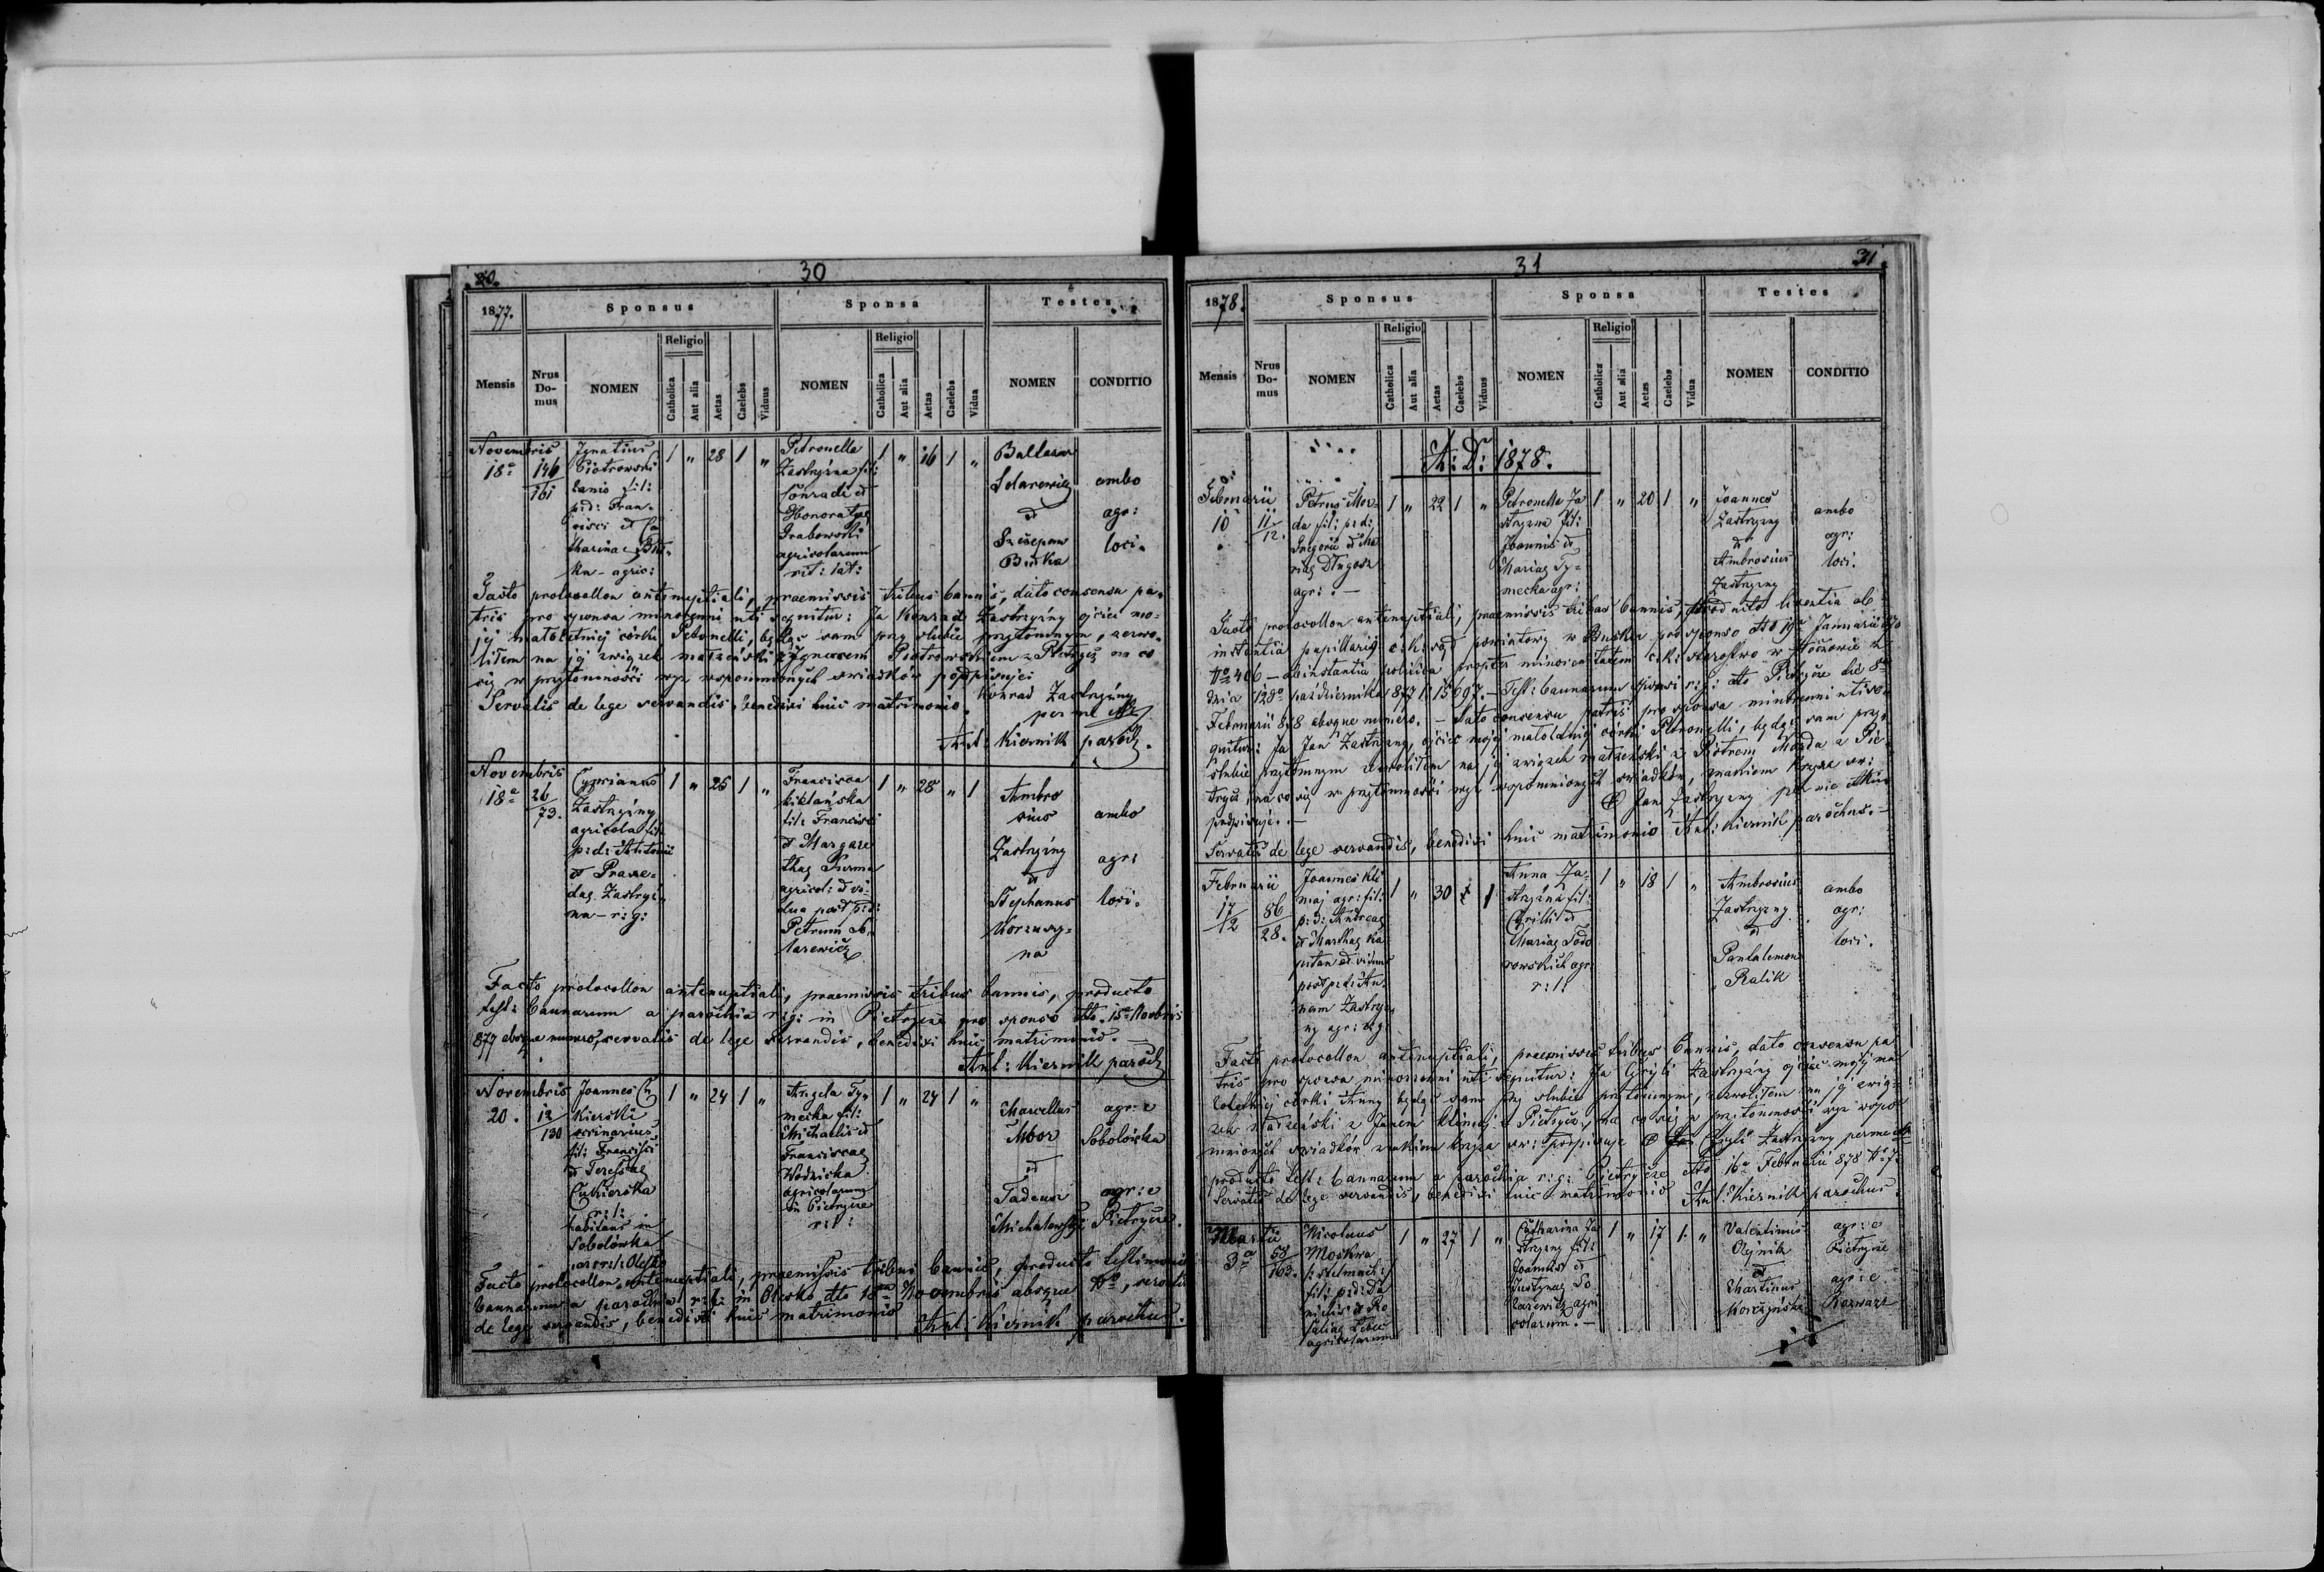 30.
30
1877.
Sponsus
Sponsa
Testes
Mensis
Nrus Do-mus
NOMEN
Religio
Catholica
Aut alia
Aetas
Caelebs
Viduus
NOMEN
Religio
Catholica
Aut alia
Aetas
Caelebs
Vidua
NOMEN
CONDITIO
Novembris
18a
146/161
Ignatius
Piotrowski
fil:
p: d: Fran-
cisci et Ca
tharina
agric:
1 " 28 1 "
Petronella
Zastryżna fil:
Conradi et
Honoratae
Grabowski
agricolarum
rit: lat:
1 " 16 1 "
Baltasar
et
Szczepan
ambo
agr:
loci.
Facto protocollon antenuptiali, praemissis tribus bannis, dato consensu pa-
tris pro sponsa minorenni uti sequitur: Ja Konrad Zastryżny ojciec mo-
jej małoletniej córki Petronelli, będąc sam przy ślubie przytomnym, zezwo-
liłem na jej związek małżeński z Ignacem Piotrowskiem z Pietrycz na co
się w przytomności wyż wspomnionych świadków podpisuję:
Konrad Zastryżny
Servatis de lege servandis, benedixi huic matrimonio.
per me
Ant: Kiernik paroch.
Novembris
18a
26/73.
Cyprianus
Zastryżny
agricola fil:
p: d: Antonii
et Praxe-
dae Zastryż-
na - r: g:
1 " 25 1 "
Francisca
fil: Francisci
et Margare
thae
agricol: et vi-
dua post p: d:
Petrum
1 " 28 " 1
Ambro
sius
Zastryżny
et
Stephanus
ambo
agr:
loci.
Facto protocollon antenuptiali, praemissis tribus bannis, producto
test: bannarum a parochia r: g: in Pietrycze pro sponso dto. 15a Novbris
877 absque numero, servatis de lege servandis, benedixi huic matrimonio. —
Ant: Kiernik paroch
Novembris
20.
12/130
Joannes Cu
kierski
fil: Francisci
et Teressae
Cukierska
r: l:
habitans in
Sobolówka
par: r: l: Olesko
1 " 24 1 "
Angela Ty-
mecka fil:
Michaelis et
Franciscae
Wodzicka
agricolarum
in Pietrycze
r: l:
1 " 24 1 "
Marcellus
Moor
et
Tadeus
Michalewski
agr: e
Sobolówka
agr: e
Pietrycze.
Facto protocollon antenuptiali, praemissis tribus bannis, producto testimonio
bannarum a parochia r: l: in Olesko dto 18a Novembris absque No, servatis
de lege servandis, benedixi huic matrimonio
Ant: Kiernik parochus.
31
31.
1878.
Sponsus
Sponsa
Testes
Mensis
Nrus Do-mus
NOMEN
Religio
Catholica
Aut alia
Aetas
Caelebs
Viduus
NOMEN
Religio
Catholica
Aut alia
Aetas
Caelebs
Vidua
NOMEN
CONDITIO
A: D: 1878.
Februarii
10
11/12.
Petrus Moz-
da fil: p: d:
Gregorii et Ma
riae Długosz
agr: —
1 " 22 1 "
Petronella Za
stryżna fil:
Joannis et
Mariae Ty-
mecka agr:
1 " 20 1 "
Joannes
Zastryżny
et
Ambrosius
Zastryżny
ambo
agr:
loci.
Facto protocollon antenuptiali, praemissis tribus bannis, producto licentia ab
instantia pupillari c. k. sąd powiatowy w Busku pro sponso dto 19a Januarii
No 406 — ab instantia politica propter minorenitatem c. k: starostwo w Złoczowie z
dnia 128o października 877 l: 15697. — Test: bannarum sponsi r: g: dto Pietrycze die 8a
Februarii 878 absque numero. — Dato consensu patris pro sponsa minorenni uti se-
quitur: Ja Jan Zastryżny, ojciec mojej małoletniej córki Petronelli, będąc sam przy
ślubie przytomnym zezwoliłem na jej związek małżeński z Piotrem Mozda z Pie-
trycz, na co się w przytomności wyż wspomnionych świadków, znakiem krzyża św:
podpisuję. —
Jan Zastryżny per me
Servatis de lege servandis, benedixi huic matrimonio Ant: Kiernik parochus. —
Februarii
17/2
86/28.
Joannes Kli
maj agr: fil:
p: d: Andreae
et Marthae Ka
pitan et viduus
post p: d: An-
nam Zastryż-
ny agr: r: g:
1 " 30 1
Anna Za-
stryżna fil:
Cyrilli et
Mariae Todo
rowskich agr
r: l:
1 " 18 1 "
Ambrosius
Zastryżny
et
Pantalemon
Ralik
ambo
agr:
loci.
Facto protocollon antenuptiali, praemissis tribus bannis, dato consensu pa
tris pro sponsa minorenni uti sequitur: Ja Cyryli Zastryżny ojciec mojej ma
łoletniej córki Anny będąc sam przy ślubie przytomnym, zezwoliłem na jej zwią-
zek małżeński z Janem Klimaj z Pietrycz, na co się w przytomności wyż wspo-
mnionych świadków znakiem krzyża św: podpisuję Cyryli Zastryżny per me
producto test: bannarum a parochia r: g: Pietrycze dto 16a Februarii 878 No 7.
Servatis de lege servandis, benedixi huic matrimonio Ant: Kiernik parochus.
Martii
3a
58/163.
Nicolaus
Moskwa
fil: p: d: Da
nielis et Ro
saliae
agricolarum
1 " 27 1 "
Catharina Za
stryżny fil:
Joannis et
Justynae So
larewicz agri
colarum. —
1 " 17 1. "
Valentinus
Olejnik
et
Martinus
agr: e
Pietrycze
agr: e